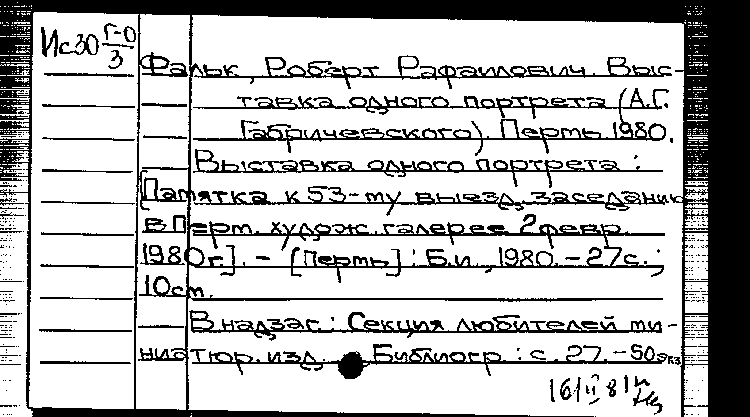 Ис30 Г-0/3
Фальк, Роберт Рафаилович. Выс-
тавка одного портрета (А.Г.
Габричевского). Пермь 1980.
Выставка одного портрета :
[Памятка к 53-му выезд. заседанию
в Перм. худож. галерее 2 февр.
1980г.]. - [Пермь] : Б.и., 1980. - 27с. ;
10см.
В надзаг. : Секция любителей ми-
ниатюр. изд. Библиогр : с. 27. - 50экз
16/II 81